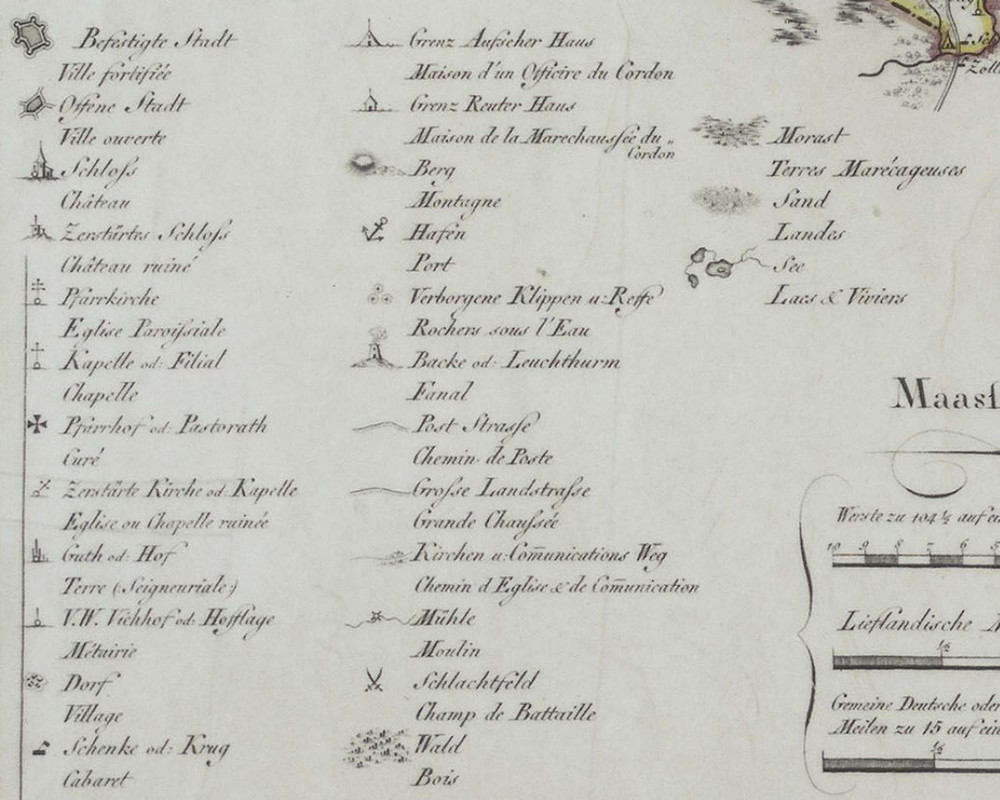 Befestigte Stadt
Ville fortifiée
Offene Stadt
Ville ouverte
Schloſs
Château
Zerstärtes Schloſs
Château ruiné
Pfarrkirche
Eglise Paroiſsiale
Kapelle od: Filial
Chapelle
Pfarrhof od: Pastorath
Curé
Zerstärte Kirche od: Kapelle
Eglise ou Chapelle ruinée
Guth od: Hof
Terre (:Seigneuriale:)
V.W. Viehhof od: Hofflage
Métairie
Dorf
Village
Schenke od: Krug
Cabaret
Grenz Aufseher Haus
Maison d'un Officire du Cordon
Grenz Reuter Haus
Maison de la Marechauſsée du „
Cordon
Berg
Montagne
Hafen
Port
Verborgene Klippen u: Reffe
Rochers sous l'Eau
Backe od: Leuchthurm
Fanal
Post Straſse
Chemin de Poste
Groſse Landstraſse
Grande Chauſsée
Kirchen u: Com̄unications Weg
Chemin d'Eglise & de Com̄unication
Mühle
Moulin
Schlachtfeld
Champ de Battaille
Wald
Bois
Morast
Terres Marécageuses
Sand
Landes
See
Lacs & Viviers
Maasſ
Werste zu 104½ auf ein
10 9 8 7 6 5
Lieflandische M
½
Gemeine Deutsche oder
Meilen zu 15 auf ein
½
Zoll